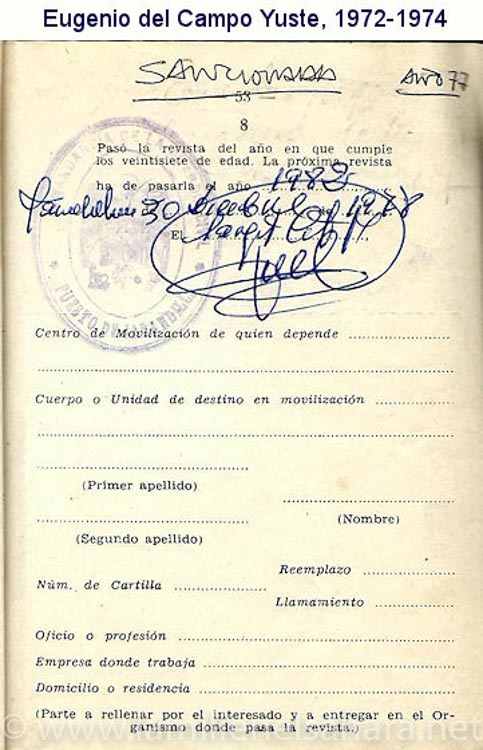 Eugenio del Campo Yuste, 1972-1974
SANCIONADA AÑO 77
— 53 —
8
Pasó la revista del año en que cumple
los veintisiete de edad. La próxima revista
ha de pasarla el año 1983
30 1978
El
Centro de Movilización de quien depende
Cuerpo o Unidad de destino en movilización
(Primer apellido)
(Nombre)
(Segundo apellido)
Reemplazo
Núm. de Cartilla
Llamamiento
Oficio o profesión
Empresa donde trabaja
Domicilio o residencia
(Parte a rellenar por el interesado y a entregar en el Or-
ganismo donde pasa la revista.)
© www.familienelbahara.net